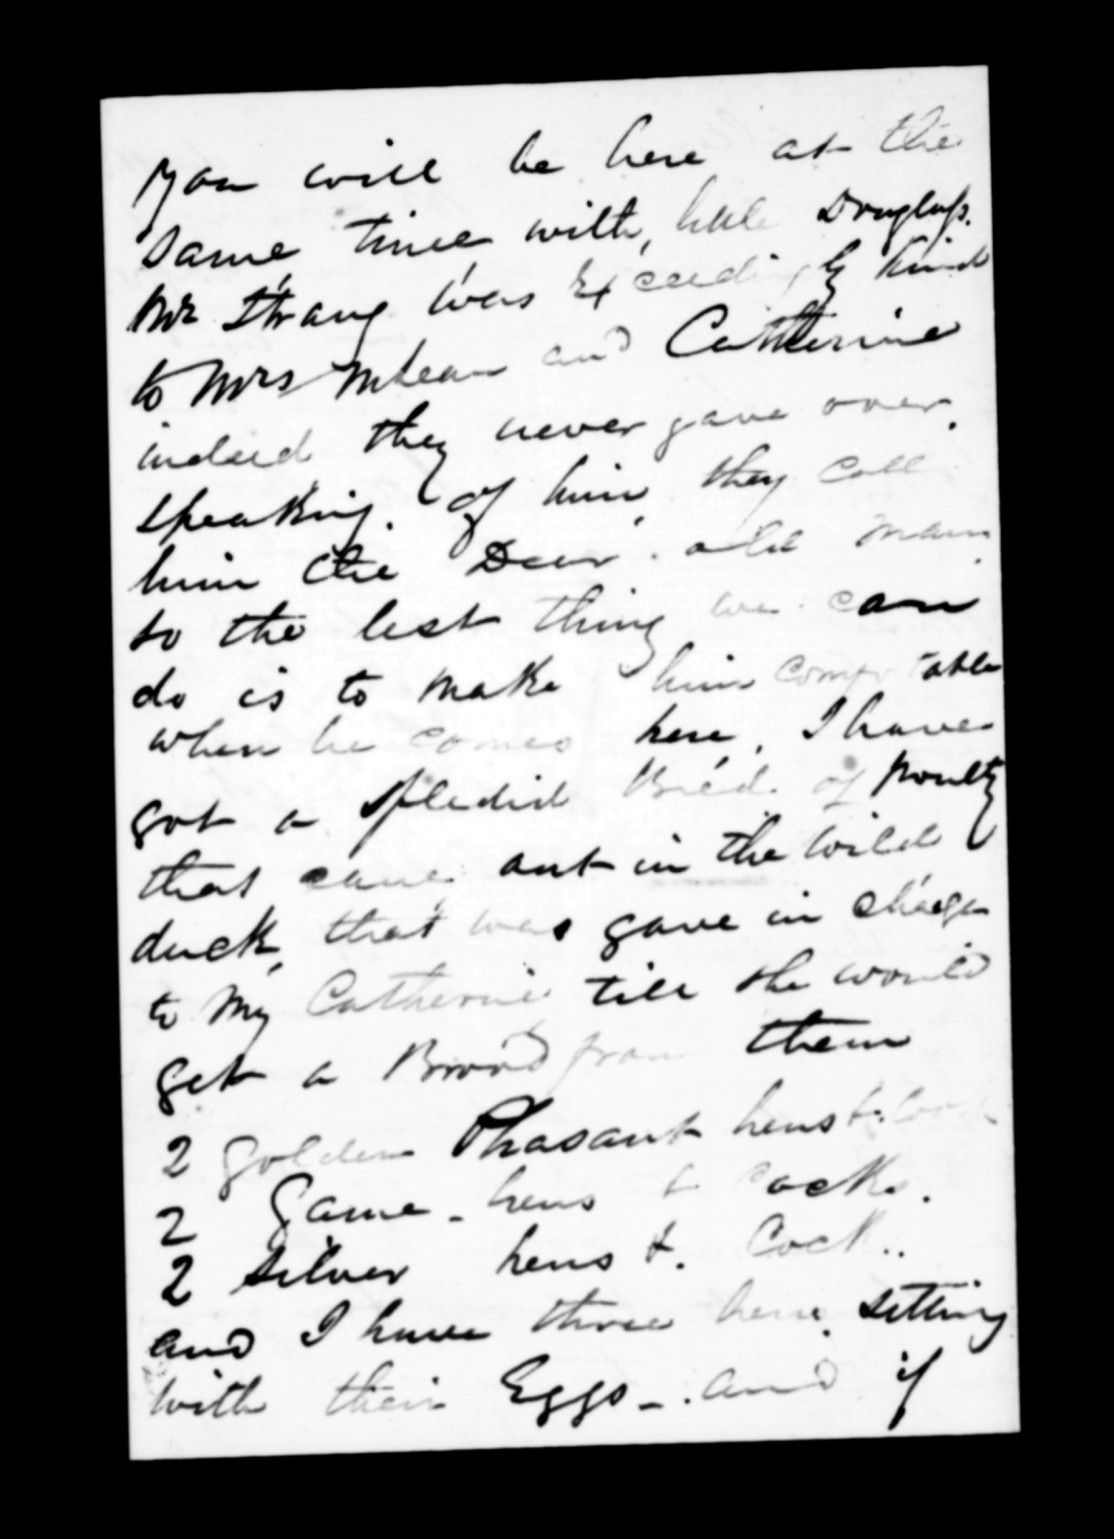 you will be here at the
same time with, little Douglass.
Mr Strang was Exceedingly kind
to Mrs McLean and Catherine
indeed they never gave over,
speaking. of him, they call
him the Dear. old man
so the lest thing we can
do is to make him comfortable
when he comes here, I have
got a spledid Bred. of poulty
that came out in the Wild
duck, that was gave in chage
to My Catherine till she would
get a Brood from them
2 golden Phasant hens & cock
2 Game - hens & cocks.
2 silver hens &. Cock..
and I have three hens sitting
with their Eggs - . and if